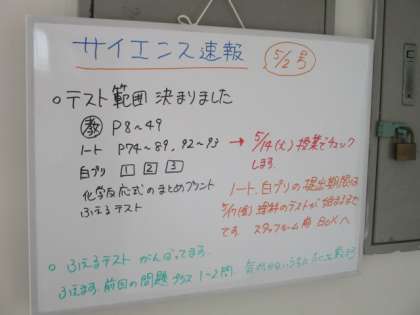 サイエンス速報 5/2号
○テスト範囲 決まりました
教 P8～49
ノート P74～89, 92～93 → 5/14(火)授業でチェック
します。
白プリ 1 2 3
化学反応式のまとめプリント
ふえるテスト
ノート、白プリの提出期限は
5/17(金)理科のテストが始まるまで
です スタッフルーム前 BOXへ
○ ふえるテスト がんばってます。
ふえます。前回の問題プラス 1～2問.